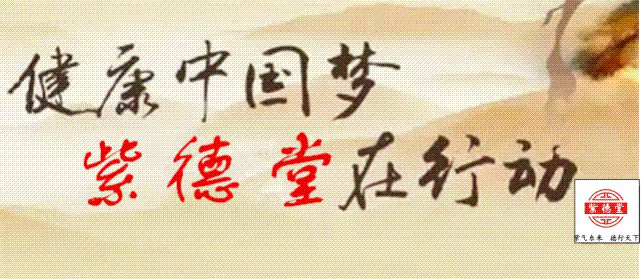 健康中国梦
紫德堂在行动
紫德堂
紫气东来 德行天下